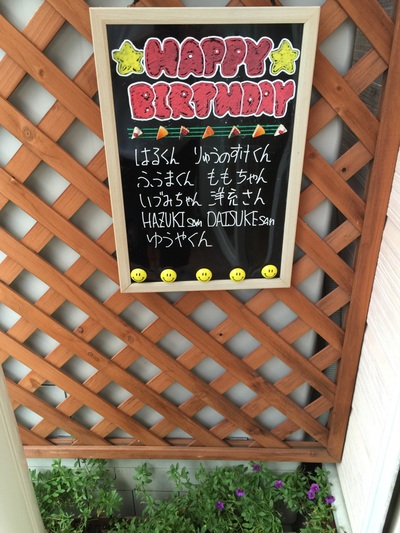 HAPPY
BIRTHDAY
はるくん りゅうのすけくん
ふうまくん ももちゃん
いづみちゃん 洋充さん
HAZUKI san DAISUKE san
ゆうやくん